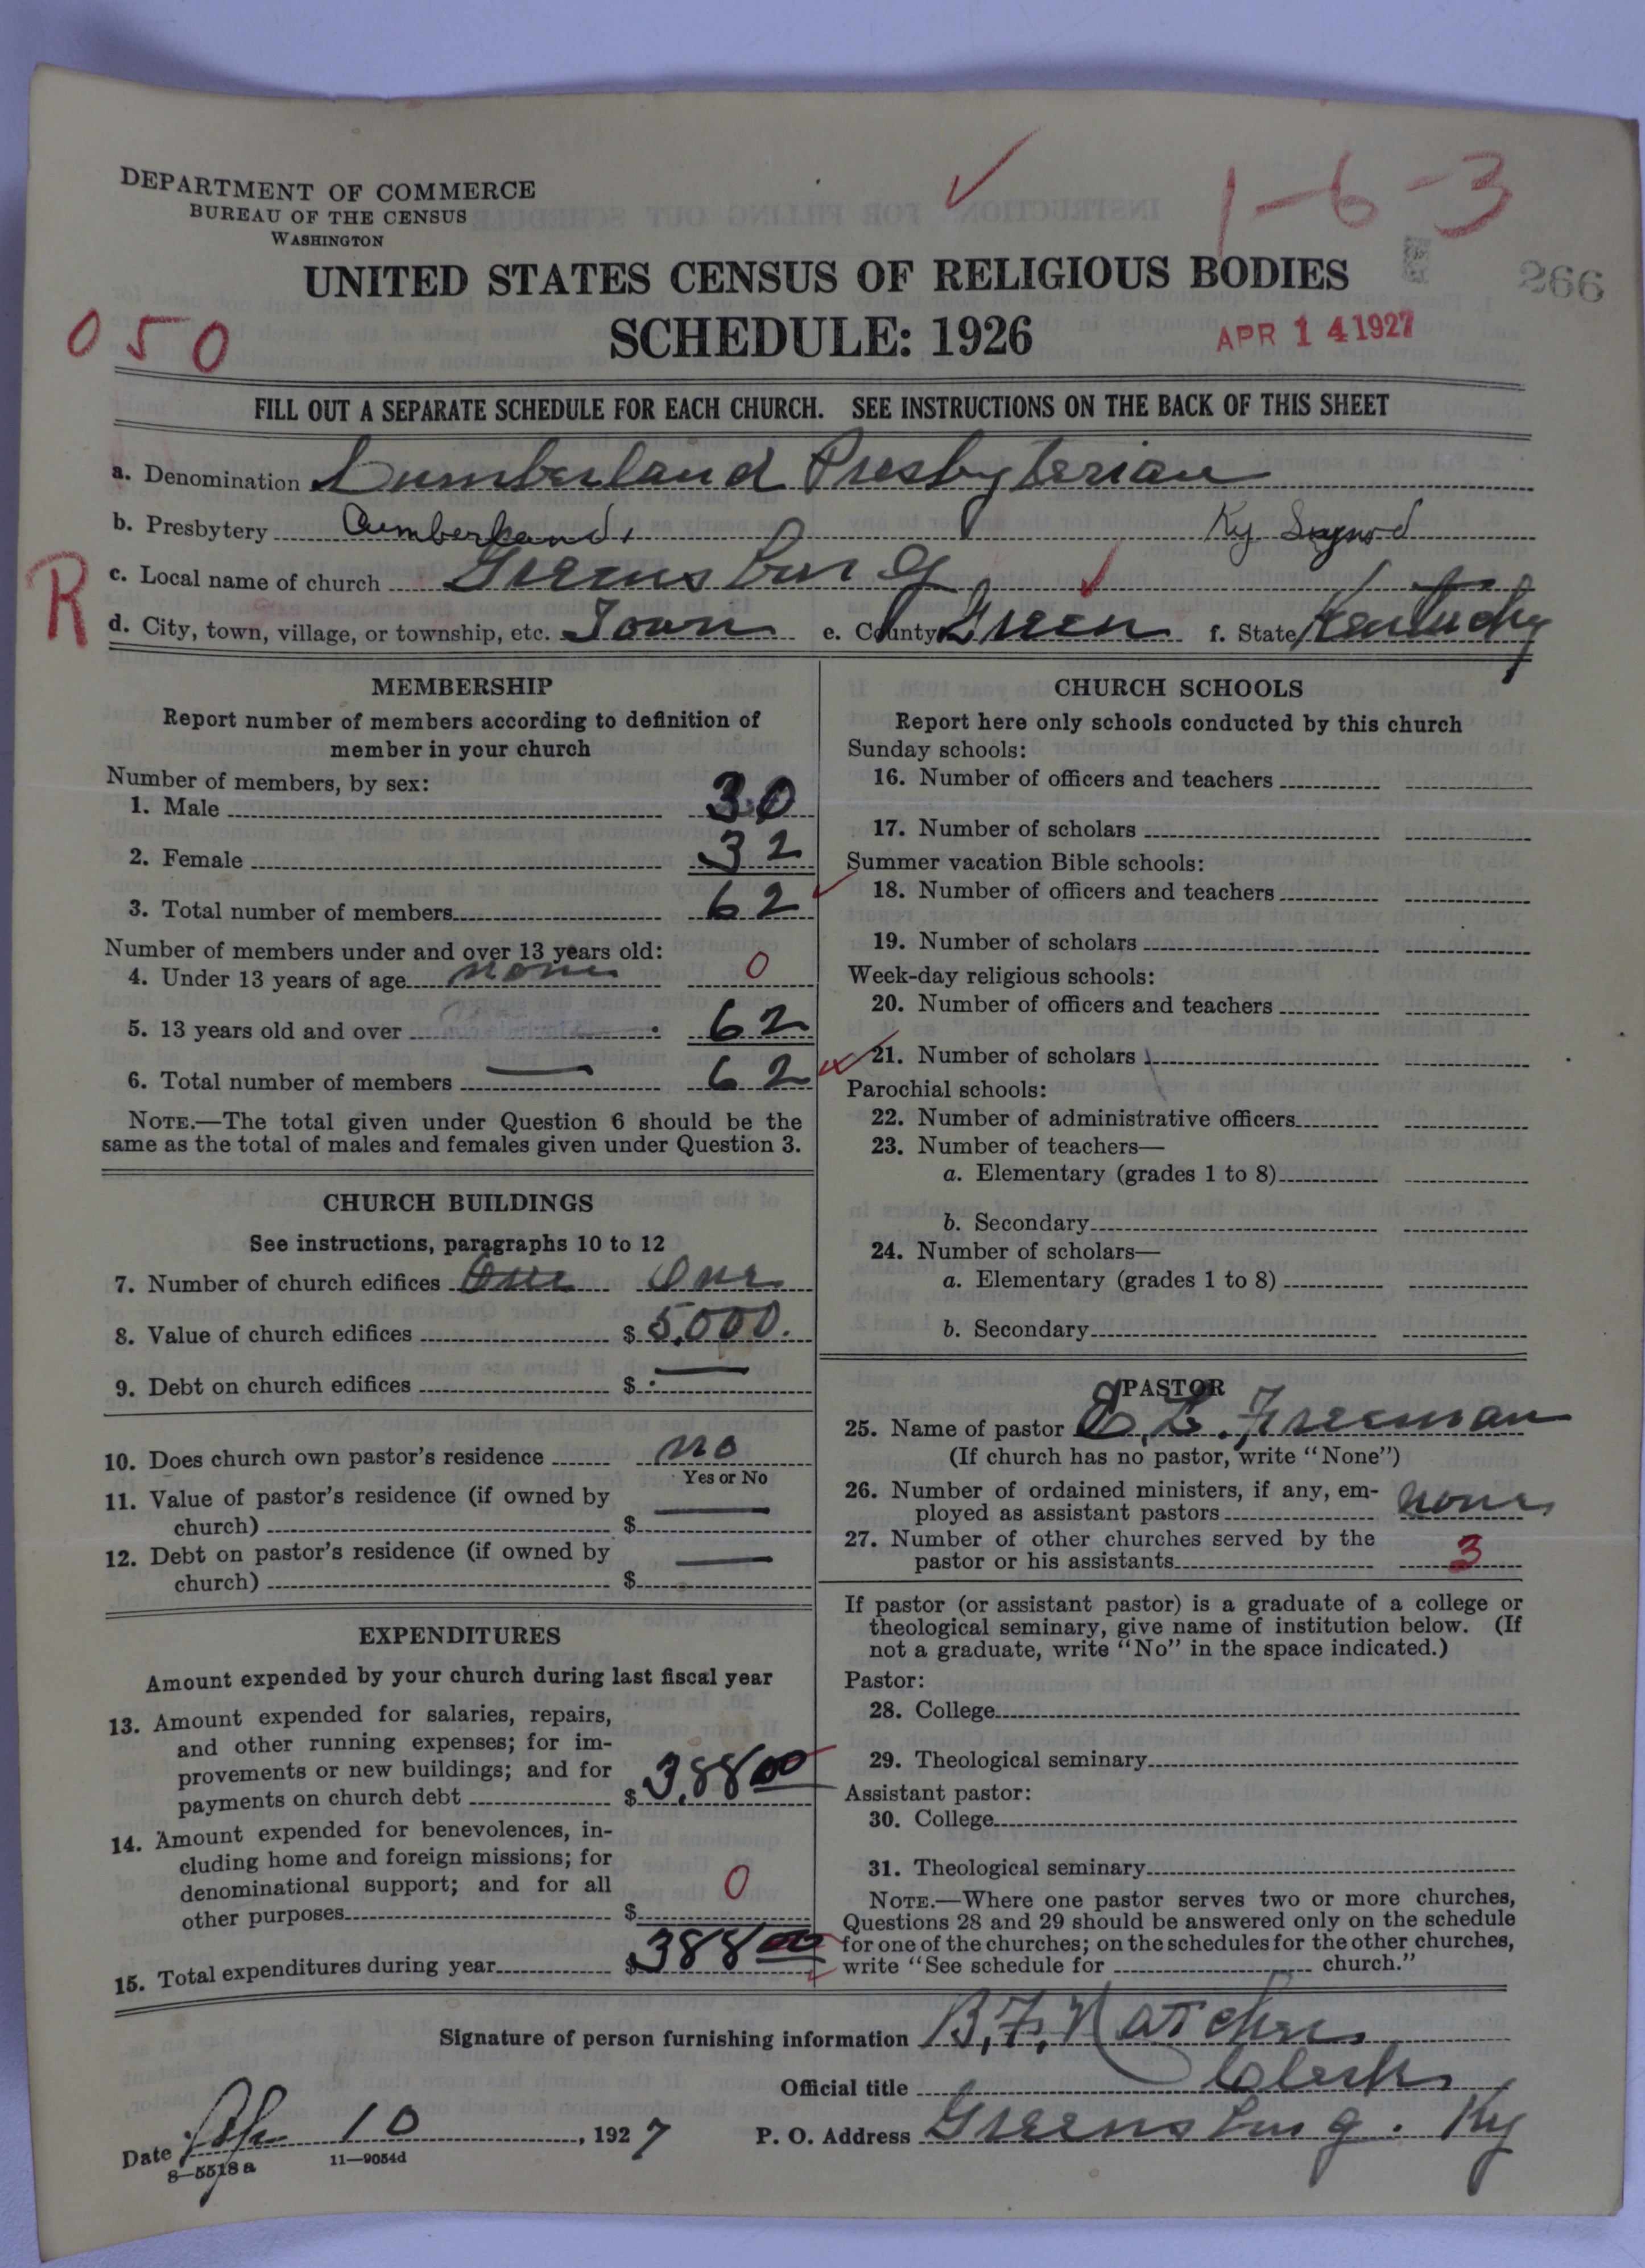 DEPARTMENT OF COMMERCE
BUREAU OF THE CENSUS
WASHINGTON
1-6-3
UNITED STATES CENSUS OF RELIGIOUS BODIES
266
050
SCHEDULE: 1926
APR 14 1927
FILL OUT A SEPARATE SCHEDULE FOR EACH CHURCH. SEE INSTRUCTIONS ON THE BACK OF THIS SHEET
a. Denomination Cumberland Presbyterian
b. Presbytery Cumberland, Ky Synod
R
c. Local name of church Greensburg
d. City, town, village, or township, etc. Town e. County Green f. State Kentucky
MEMBERSHIP
Report number of members according to definition of
member in your church
Number of members, by sex:
1. Male 30
2. Female 32
3. Total number of members 62
Number of members under and over 13 years old:
4. Under 13 years of age none 0
5. 13 years old and over 62
6. Total number of members — 62
NOTE.—The total given under Question 6 should be the
same as the total of males and females given under Question 3.
CHURCH BUILDINGS
See instructions, paragraphs 10 to 12
7. Number of church edifices One One
8. Value of church edifices $ 5,000.
9. Debt on church edifices $ —
10. Does church own pastor's residence no
Yes or No
11. Value of pastor's residence (if owned by
church) $ —
12. Debt on pastor's residence (if owned by
church) $ —
EXPENDITURES
Amount expended by your church during last fiscal year
13. Amount expended for salaries, repairs,
and other running expenses; for im-
provements or new buildings; and for
payments on church debt $ 388 00
14. Amount expended for benevolences, in-
cluding home and foreign missions; for
denominational support; and for all
other purposes $ 0
15. Total expenditures during year $ 388 00
CHURCH SCHOOLS
Report here only schools conducted by this church
Sunday schools:
16. Number of officers and teachers
17. Number of scholars
Summer vacation Bible schools:
18. Number of officers and teachers
19. Number of scholars
Week-day religious schools:
20. Number of officers and teachers
21. Number of scholars
Parochial schools:
22. Number of administrative officers
23. Number of teachers—
a. Elementary (grades 1 to 8)
b. Secondary
24. Number of scholars—
a. Elementary (grades 1 to 8)
b. Secondary
PASTOR
25. Name of pastor E. L. Freeman
(If church has no pastor, write "None")
26. Number of ordained ministers, if any, em-
ployed as assistant pastors none
27. Number of other churches served by the
pastor or his assistants 3
If pastor (or assistant pastor) is a graduate of a college or
theological seminary, give name of institution below. (If
not a graduate, write "No" in the space indicated.)
Pastor:
28. College
29. Theological seminary
Assistant pastor:
30. College
31. Theological seminary
NOTE.—Where one pastor serves two or more churches,
Questions 28 and 29 should be answered only on the schedule
for one of the churches; on the schedules for the other churches,
write "See schedule for church."
Signature of person furnishing information B. F.
Official title Clerk
Date Ap 10, 1927 P. O. Address Greensburg. Ky
8—5518 a 11—9054d